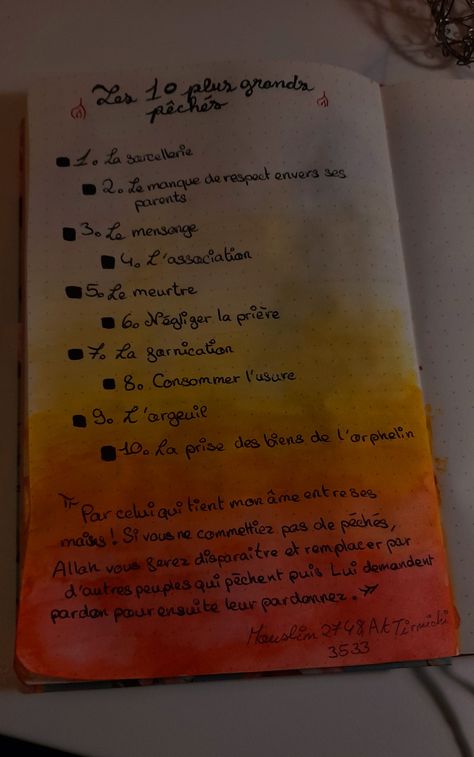 Les 10 plus grands
pêchés
1. La sorcellerie
2. Le manque de respect envers ses
parents
3. Le mensonge
4. L'association
5. Le meurtre
6. Négliger la prière
7. La fornication
8. Consommer l'usure
9. L'orgeuil
10. La prise des biens de l'orphelin
"Par celui qui tient mon âme entre ses
mains! Si vous ne commettiez pas de péchés,
Allah vous ferez disparaître et remplacer par
d'autres peuples qui pêchent puis Lui demandent
pardon pour ensuite leur pardonnez."
Mouslim 2748 At Tirmidi
3533